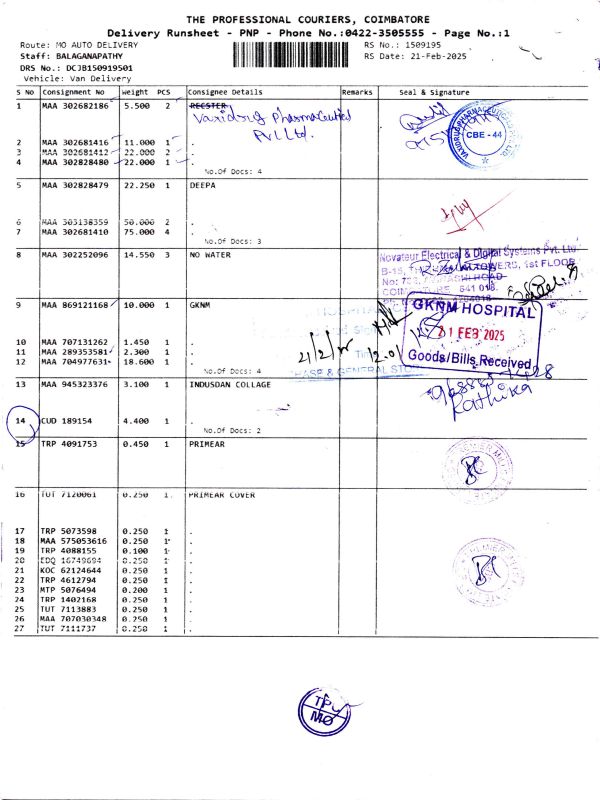 THE PROFESSIONAL COURIERS, COIMBATORE
Delivery Runsheet - PNP - Phone No.:0422-3505555 - Page No.:1
Route: MO AUTO DELIVERY RS No.: 1509195
Staff: BALAGANAPATHY RS Date: 21-Feb-2025
DRS No.: DCJB150919501
Vehicle: Van Delivery
S No Consignment No Weight PCS Consignee Details Remarks Seal & Signature
1 MAA 302682186 5.500 2 RECSTER
Vaxidrug Pharmaceutical
Pvt Ltd.
VAXIDRUG PHARMACEUTICALS PVT. LTD.
CBE - 44
2 MAA 302681416 11.000 1 .
3 MAA 302681412 22.000 2 .
4 MAA 302828480 22.000 1 .
No.Of Docs: 4
5 MAA 302828479 22.250 1 DEEPA
6 MAA 303138359 50.000 2 .
7 MAA 302681410 75.000 4 .
No.Of Docs: 3
8 MAA 302252096 14.550 3 NO WATER
Novateur Electrical & Digital Systems Pvt. Ltd
B-15, TOWERS, 1st FLOOR
ROAD
641 018.
9 MAA 869121168 10.000 1 GKNM
GKNM HOSPITAL
21 FEB 2025
Goods/Bills Received
10 MAA 707131262 1.450 1 .
11 MAA 289353581 2.300 1 .
12 MAA 704977631 18.600 1 .
21/2/25
& GENERAL STORE
No.Of Docs: 4
13 MAA 945323376 3.100 1 INDUSDAN COLLAGE
Karthika
14 CUD 189154 4.400 1 .
No.Of Docs: 2
15 TRP 4091753 0.450 1 PRIMEAR
16 TUT 7120061 0.250 1 PRIMEAR COVER
17 TRP 5073598 0.250 1 .
18 MAA 575053616 0.250 1 .
19 TRP 4088155 0.100 1 .
20 EDQ 16749694 0.250 1 .
21 KOC 62124644 0.250 1 .
22 TRP 4612794 0.250 1 .
23 MTP 5076494 0.200 1 .
24 TRP 1402168 0.250 1 .
25 TUT 7113883 0.250 1 .
26 MAA 707030348 0.250 1 .
27 TUT 7111737 0.250 1 .
TPC
MO